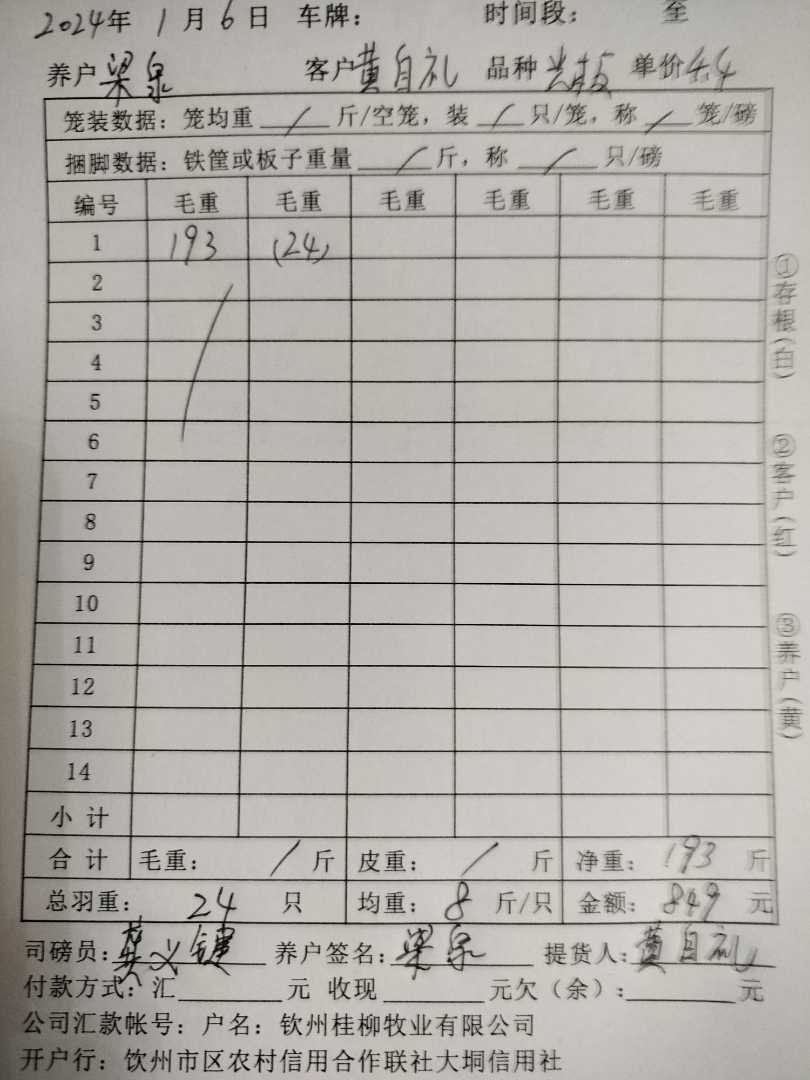 2024年 1月6日 车牌: 时间段: 至
养户 梁泉 客户 黄自礼 品种 单价 4.4
笼装数据: 笼均重 / 斤/空笼, 装 / 只/笼, 称 / 笼/磅
捆脚数据: 铁筐或板子重量 / 斤, 称 / 只/磅
编号 毛重 毛重 毛重 毛重 毛重 毛重
1 193 (24)
2
3
4
5
6
7
8
9
10
11
12
13
14
小计
合计 毛重: / 斤 皮重: / 斤 净重: 193 斤
总羽重: 24 只 均重: 8 斤/只 金额: 849 元
司磅员: 养户签名: 梁泉 提货人: 黄自礼
付款方式: 汇 元 收现 元欠(余): 元
公司汇款帐号: 户名: 钦州桂柳牧业有限公司
开户行: 饮州市区农村信用合作联社大垌信用社
①存根(白) ②客户(红) ③养户(黄)